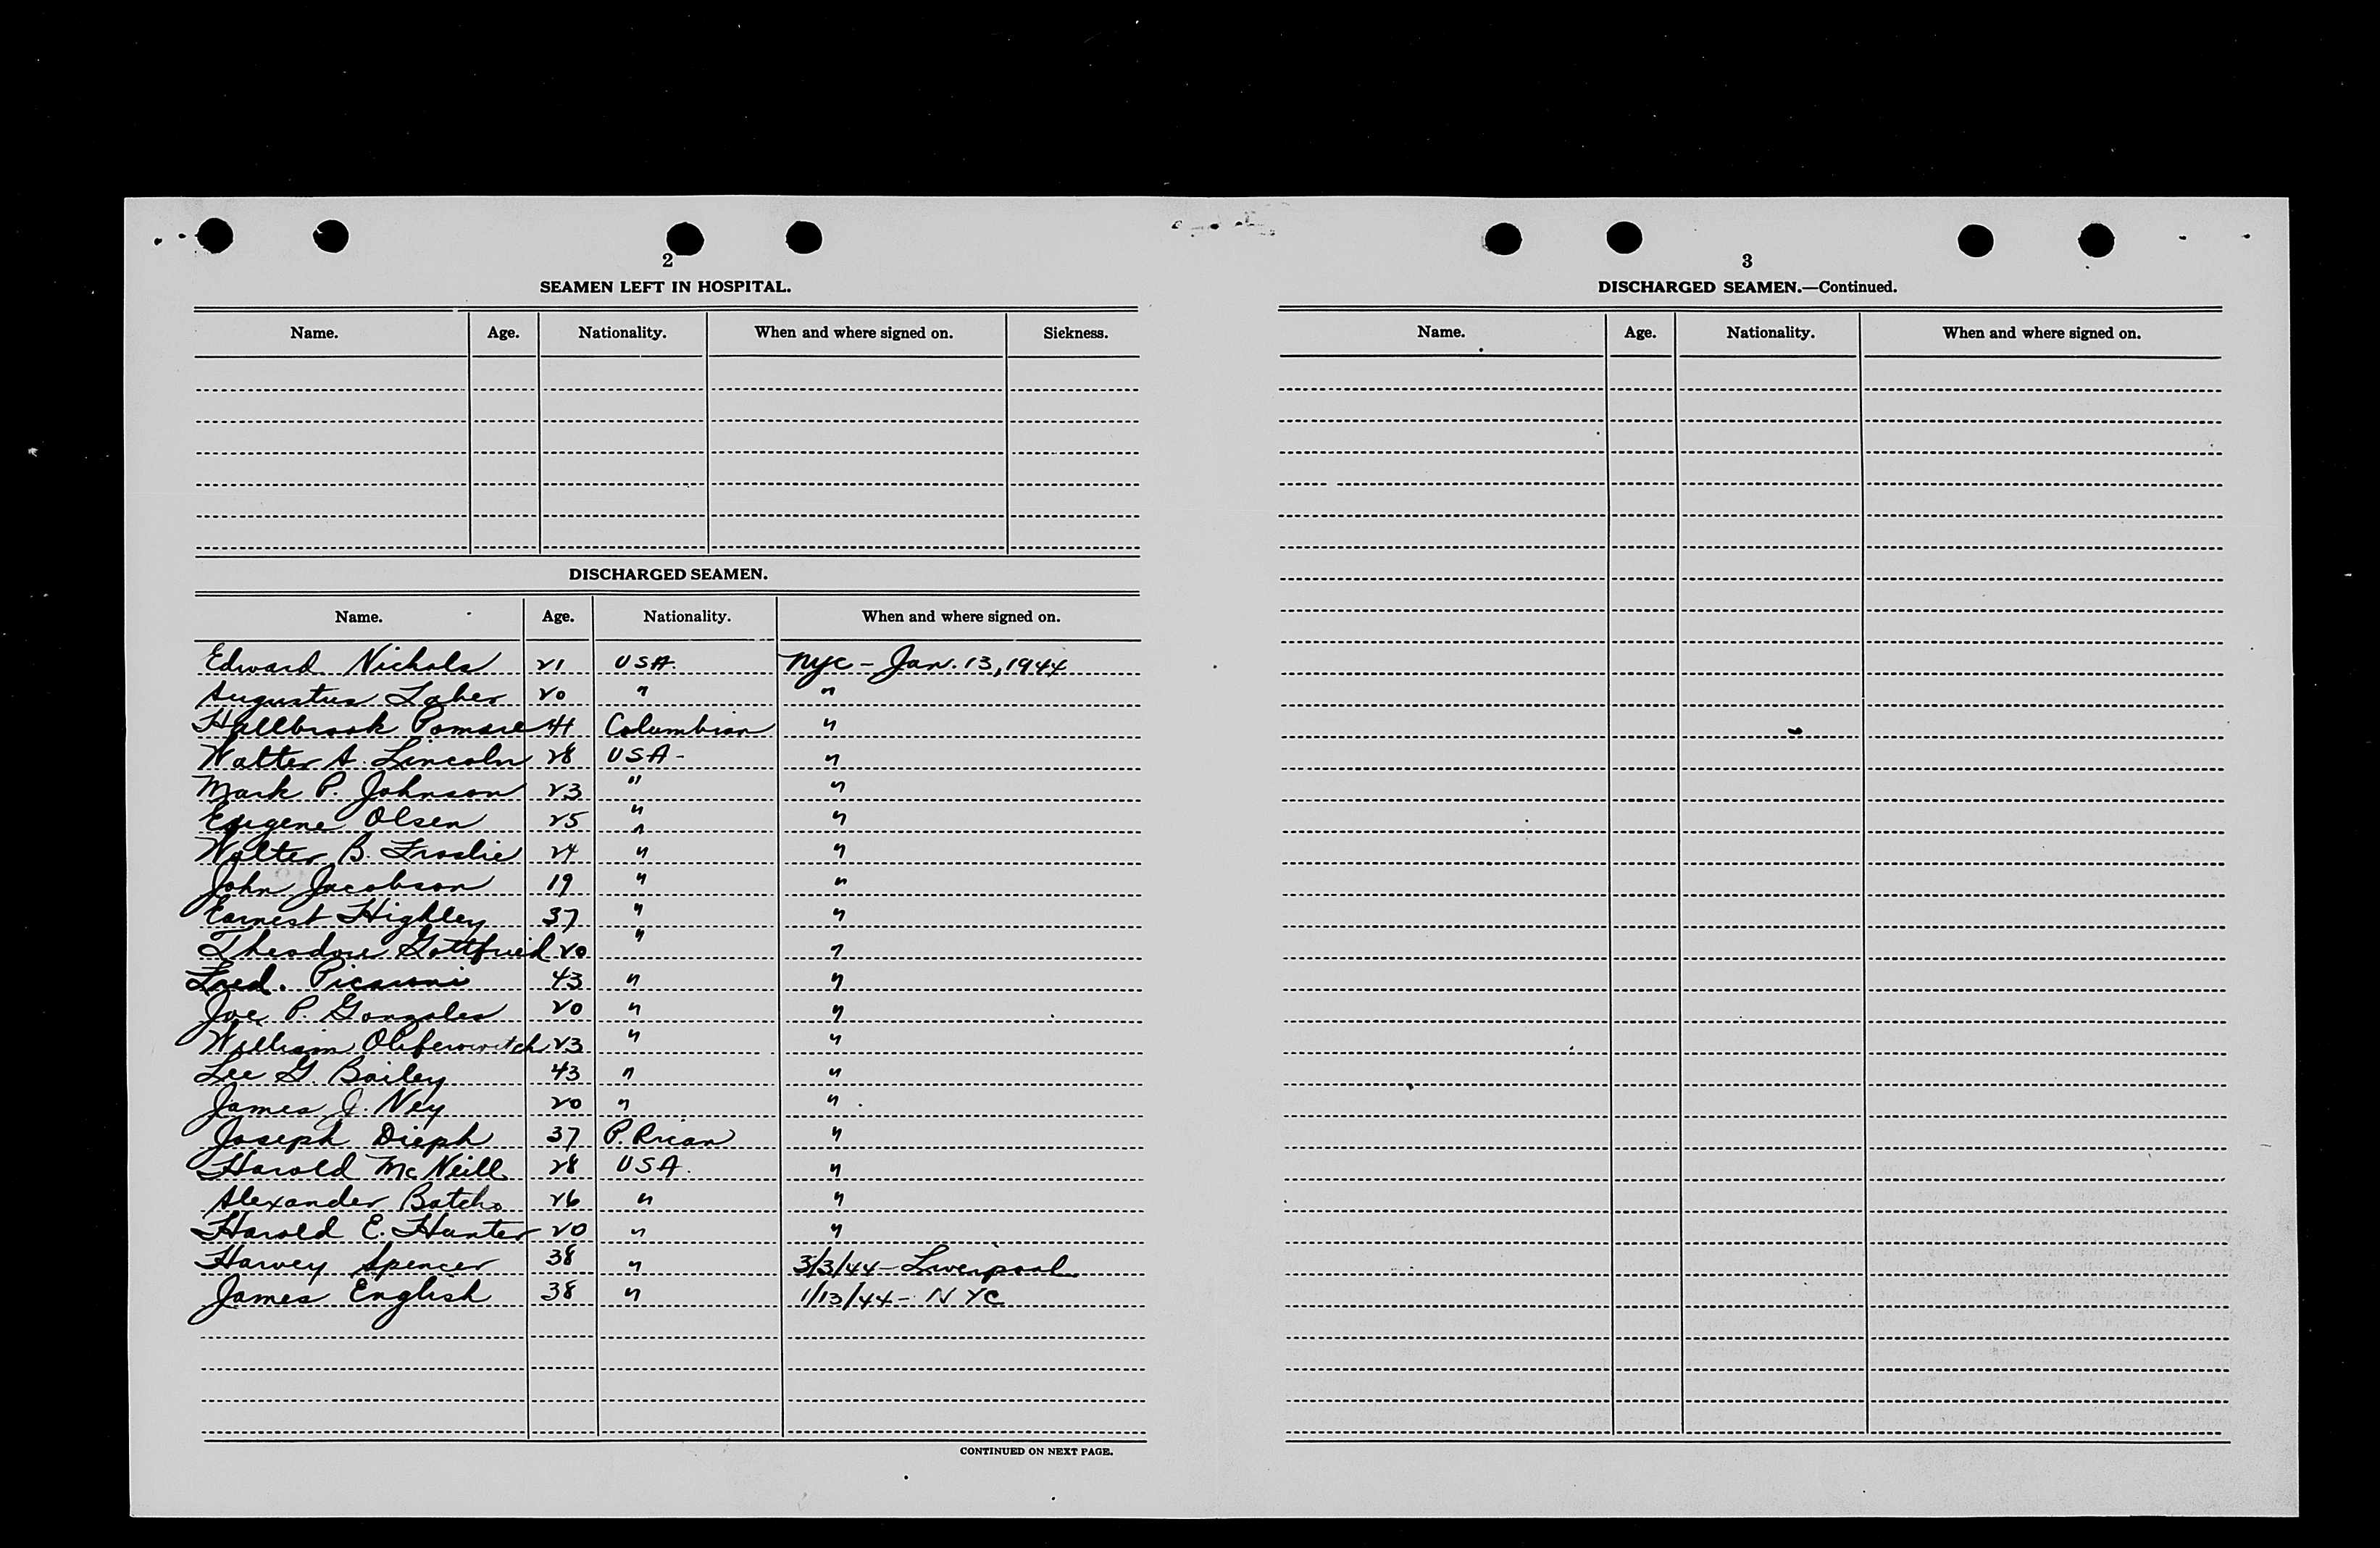 2
SEAMEN LEFT IN HOSPITAL.
Name. Age. Nationality. When and where signed on. Sickness.
DISCHARGED SEAMEN.
Name. Age. Nationality. When and where signed on.
Edward Nichols 21 USA. NYC - Jan. 13, 1944
Augustus Laber 20 " "
Hallbrook Pomare 41 Columbian "
Walter A. Lincoln 28 USA - "
Mark P. Johnson 23 " "
Eugene Olsen 25 " "
Walter B. Froslie 24 " "
John Jacobson 19 " "
Earnest Highley 37 " "
Theodore Gottfried 20 " "
Fred. Picaroni 43 " "
Joe P. Gonzales 20 " "
William 23 " "
Lee G. Bailey 43 " "
James J. Ney 20 " "
Joseph Dieph 37 P. Rican "
Harold McNeill 28 USA. "
Alexander Batcho 26 " "
Harold E. Hunter 20 " "
Harvey Spencer 38 " 3/3/44 - Liverpool
James English 38 " 1/13/44 - NYC
CONTINUED ON NEXT PAGE.
3
DISCHARGED SEAMEN.—Continued.
Name. Age. Nationality. When and where signed on.